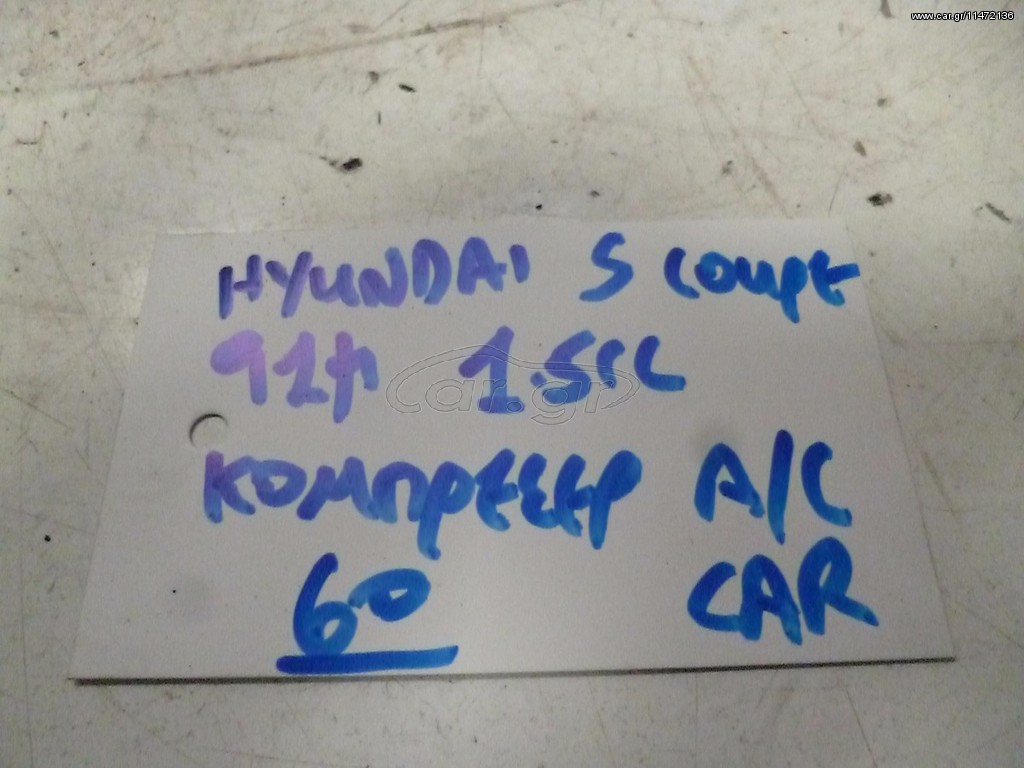 www.car.gr/11472136
HYUNDAI S COUPE
car.gr
ΚΟΜΠΡΕΣΕΡ A/C
60 CAR